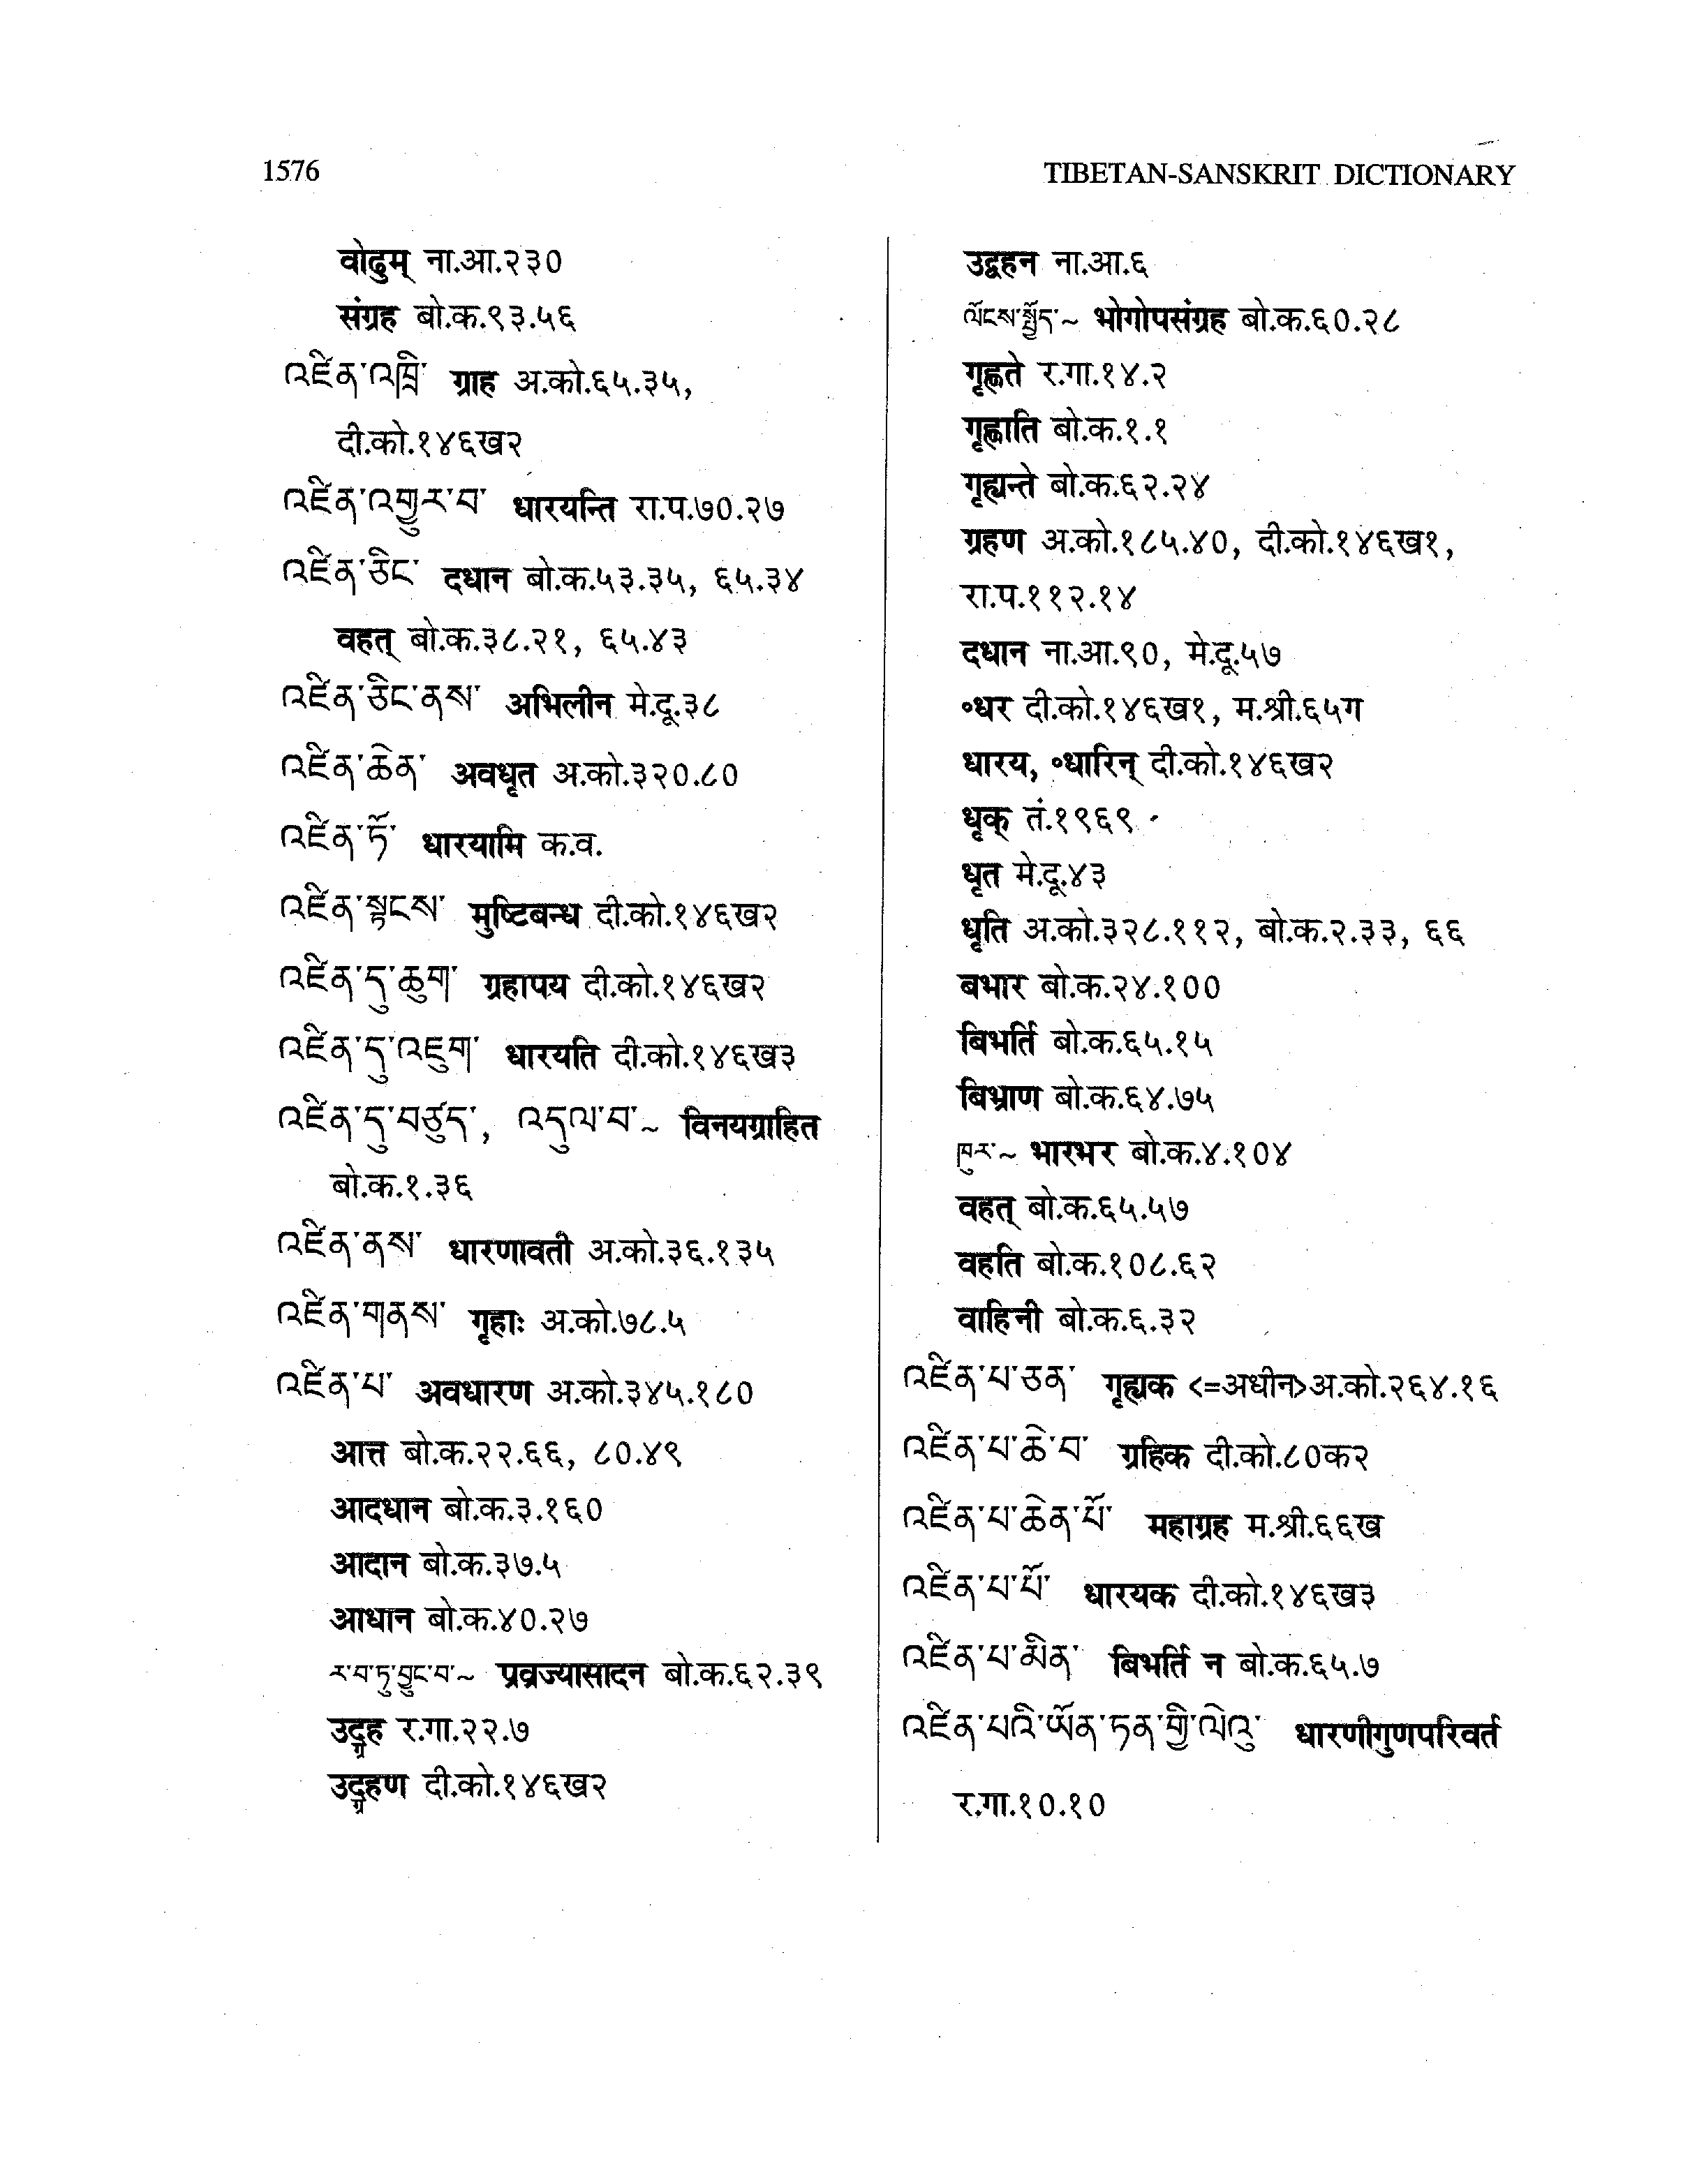 1576
TIBETAN-SANSKRIT DICTIONARY
वोढुम् ना.आ.२३०
संग्रह बो.क.९३.५६
འཛིན་འཁྲི་ ग्राह अ.को.६५.३५,
दी.को.१४६ख२
འཛིན་འགྱུར་བ་ धारयन्ति रा.प.७०.२७
འཛིན་ཅིང་ दधान बो.क.५३.३५, ६५.३४
वहत् बो.क.३८.२१, ६५.४३
འཛིན་ཅིང་ནས་ अभिलीन मे.दू.३८
འཛིན་ཆེན་ अवधृत अ.को.३२०.८०
འཛིན་ཏོ་ धारयामि क.व.
འཛིན་སྟངས་ मुष्टिबन्ध दी.को.१४६ख२
འཛིན་དུ་ཆུག་ ग्रहापय दी.को.१४६ख२
འཛིན་དུ་འཇུག་ धारयति दी.को.१४६ख३
འཛིན་དུ་བཙུད་, འདུལ་བ་~ विनयग्राहित
बो.क.१.३६
འཛིན་ནས་ धारणावती अ.को.३६.१३५
འཛིན་གནས་ गृहाः अ.को.७८.५
འཛིན་པ་ अवधारण अ.को.३४५.१८०
आत्त बो.क.२२.६६, ८०.४९
आदधान बो.क.३.१६०
आदान बो.क.३७.५
आधान बो.क.४०.२७
ར་བ་ཏུ་བྱུང་བ་~ प्रव्रज्यासादन बो.क.६२.३९
उद्ग्रह र.गा.२२.७
उद्ग्रहण दी.को.१४६ख२
उद्वहन ना.आ.६
ལོངས་སྤྱོད་~ भोगोपसंग्रह बो.क.६०.२८
गृह्णते र.गा.१४.२
गृह्णाति बो.क.१.१
गृह्यन्ते बो.क.६२.२४
ग्रहण अ.को.१८५.४०, दी.को.१४६ख१,
रा.प.११२.१४
दधान ना.आ.९०, मे.दू.५७
॰धर दी.को.१४६ख१, म.श्री.६५ग
धारय, ॰धारिन् दी.को.१४६ख२
धृक् तं.१९६९
धृत मे.दू.४३
धृति अ.को.३२८.११२, बो.क.२.३३, ६६
बभार बो.क.२४.१००
बिभर्ति बो.क.६५.१५
बिभ्राण बो.क.६४.७५
ཁུར་~ भारभर बो.क.४.१०४
वहत् बो.क.६५.५७
वहति बो.क.१०८.६२
वाहिनी बो.क.६.३२
འཛིན་པ་ཅན་ गृह्यक <=अधीन>अ.को.२६४.१६
འཛིན་པ་ཆེ་བ་ ग्रहिक दी.को.८०क२
འཛིན་པ་ཆེན་པོ་ महाग्रह म.श्री.६६ख
འཛིན་པ་པོ་ धारयक दी.को.१४६ख३
འཛིན་པ་མིན་ बिभर्ति न बो.क.६५.७
འཛིན་པའི་ཡོན་ཏན་གྱི་ལེའུ་ धारणीगुणपरिवर्त
र.गा.१०.१०